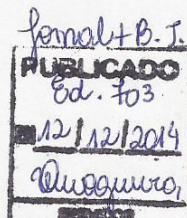 Jornal + B.T.
PUBLICADO
Ed. 703
12/12/2014